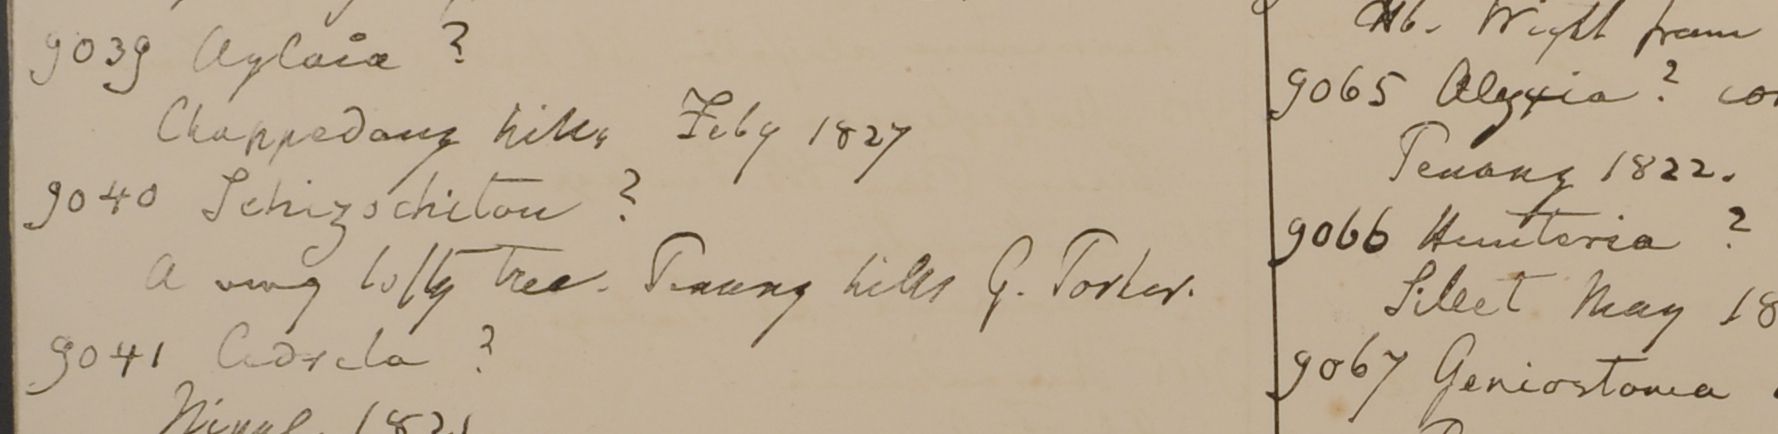 9039 Aglaia ?
Chappedong hills Feby 1827
9040 Schizochiton ?
A very lofty tree. Penang hills G. Porter.
9041 Cedrela ?
Nipal. 1821
Hb. Wight from
9065 Alyxia ? co
Penang 1822.
9066 Hunteria ?
Silet May 18
9067 Geniostoma